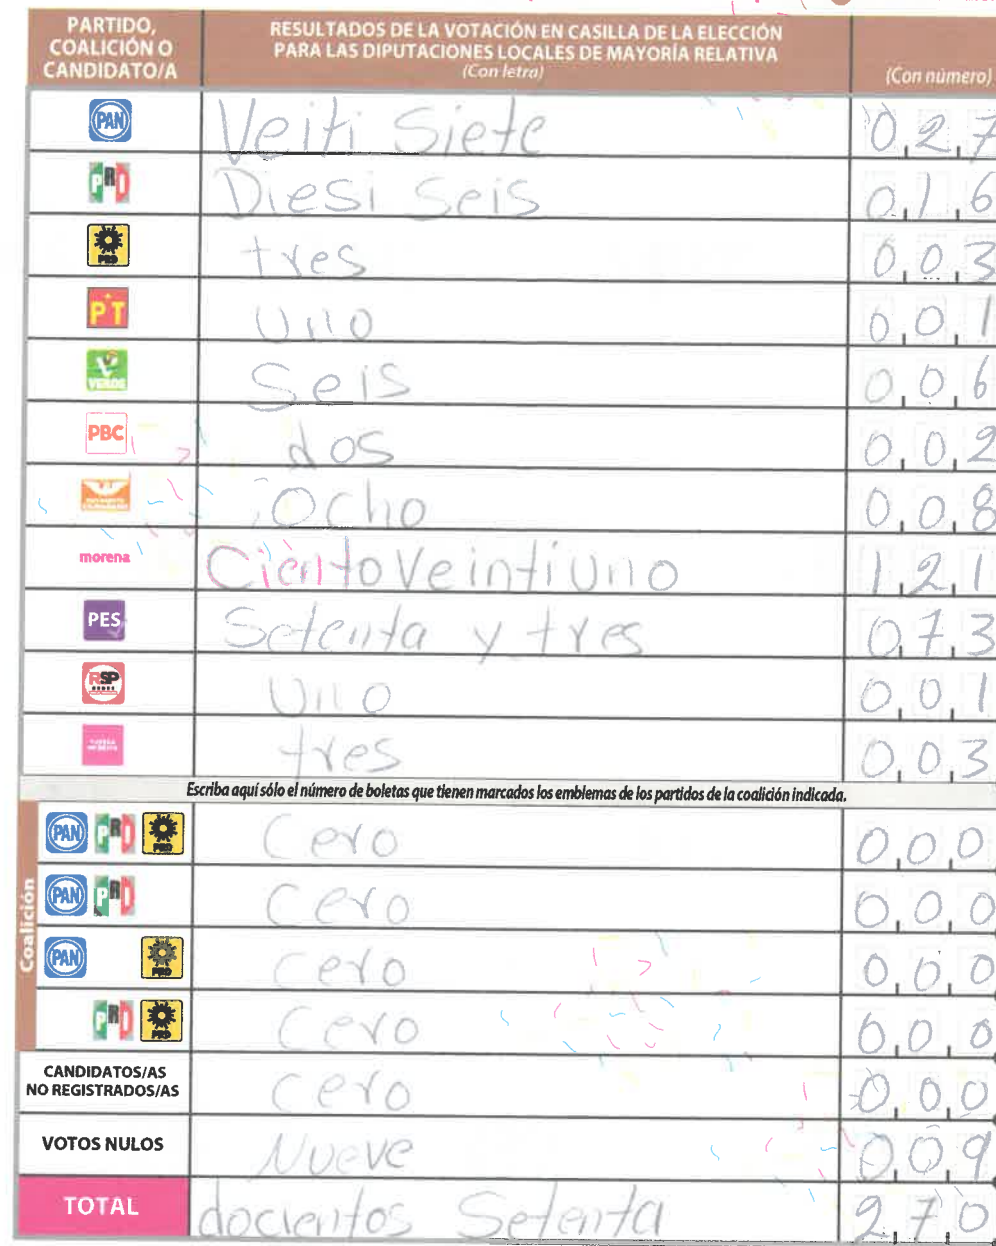 PARTIDO, COALICIÓN O CANDIDATO/A
RESULTADOS DE LA VOTACIÓN EN CASILLA DE LA ELECCIÓN PARA LAS DIPUTACIONES LOCALES DE MAYORÍA RELATIVA
(Con letra)
(Con número)
PAN Veiti Siete 0 2 7
PRI Diesi Seis 0 1 6
PRD tres 0 0 3
PT Uno 0 0 1
VERDE Seis 0 0 6
PBC dos 0 0 2
Ocho 0 0 8
morena Ciento Veinti Uno 1 2 1
PES Setenta y tres 0 7 3
RSP Uno 0 0 1
tres 0 0 3
Escriba aquí sólo el número de boletas que tienen marcados los emblemas de los partidos de la coalición indicada.
Coalición
PAN PRI PRD Cero 0 0 0
PAN PRI Cero 0 0 0
PAN PRD Cero 0 0 0
PRI PRD Cero 0 0 0
CANDIDATOS/AS NO REGISTRADOS/AS Cero 0 0 0
VOTOS NULOS Nueve 0 0 9
TOTAL docientos Setenta 2 7 0